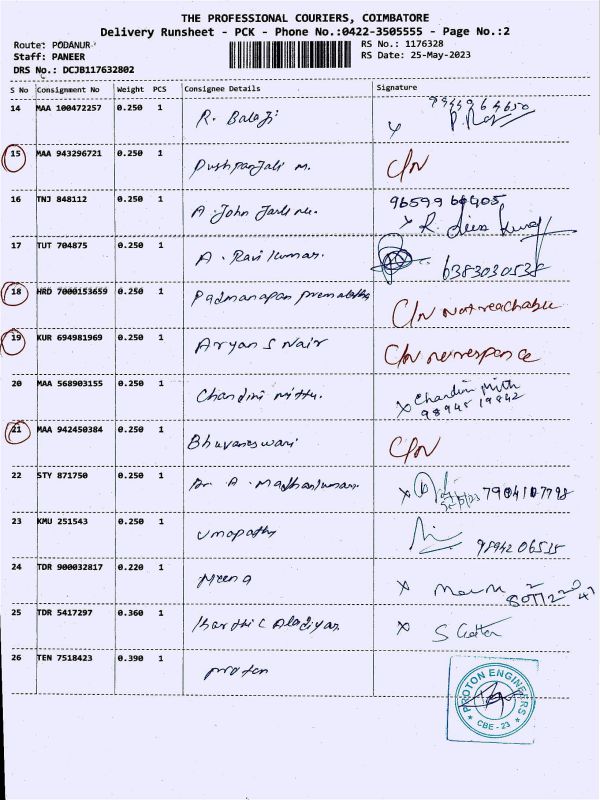 THE PROFESSIONAL COURIERS, COIMBATORE
Delivery Runsheet - PCK - Phone No.:0422-3505555 - Page No.:2
Route: PODANUR
Staff: PANEER
DRS No.: DCJB117632802
RS No.: 1176328
RS Date: 25-May-2023
S No Consignment No Weight PCS Consignee Details Signature
14 MAA 100472257 0.250 1 R. Balaji
15 MAA 943296721 0.250 1 Pushpanjali m. C/N
16 TNJ 848112 0.250 1 A. John 9659960405
17 TUT 704875 0.250 1 A. Ravi Kumar. 6383030538
18 HRD 7000153659 0.250 1 Padmanapan Premalatha C/N Not reachable
19 KUR 694981969 0.250 1 Aryan S Nair C/N no response
20 MAA 568903155 0.250 1 Chandini mithu. Chandini Mith
98945 19842
21 MAA 942450384 0.250 1 Bhuvaneswari C/N
22 STY 871750 0.250 1 Dr. A. 7904107798
23 KMU 251543 0.250 1 Umapathy 98942 06515
24 TDR 900032817 0.220 1 Meena
25 TDR 5417297 0.360 1 Karthic
26 TEN 7518423 0.390 1 Proton
PROTON ENGINEERS
CBE - 23